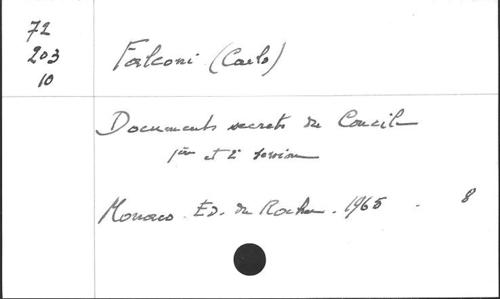 72
203
10
Falconi (Carlo)
Documents secrets du Concile
1ère et 2e session
Monaco. Ed. du Rocher. 1965. 8